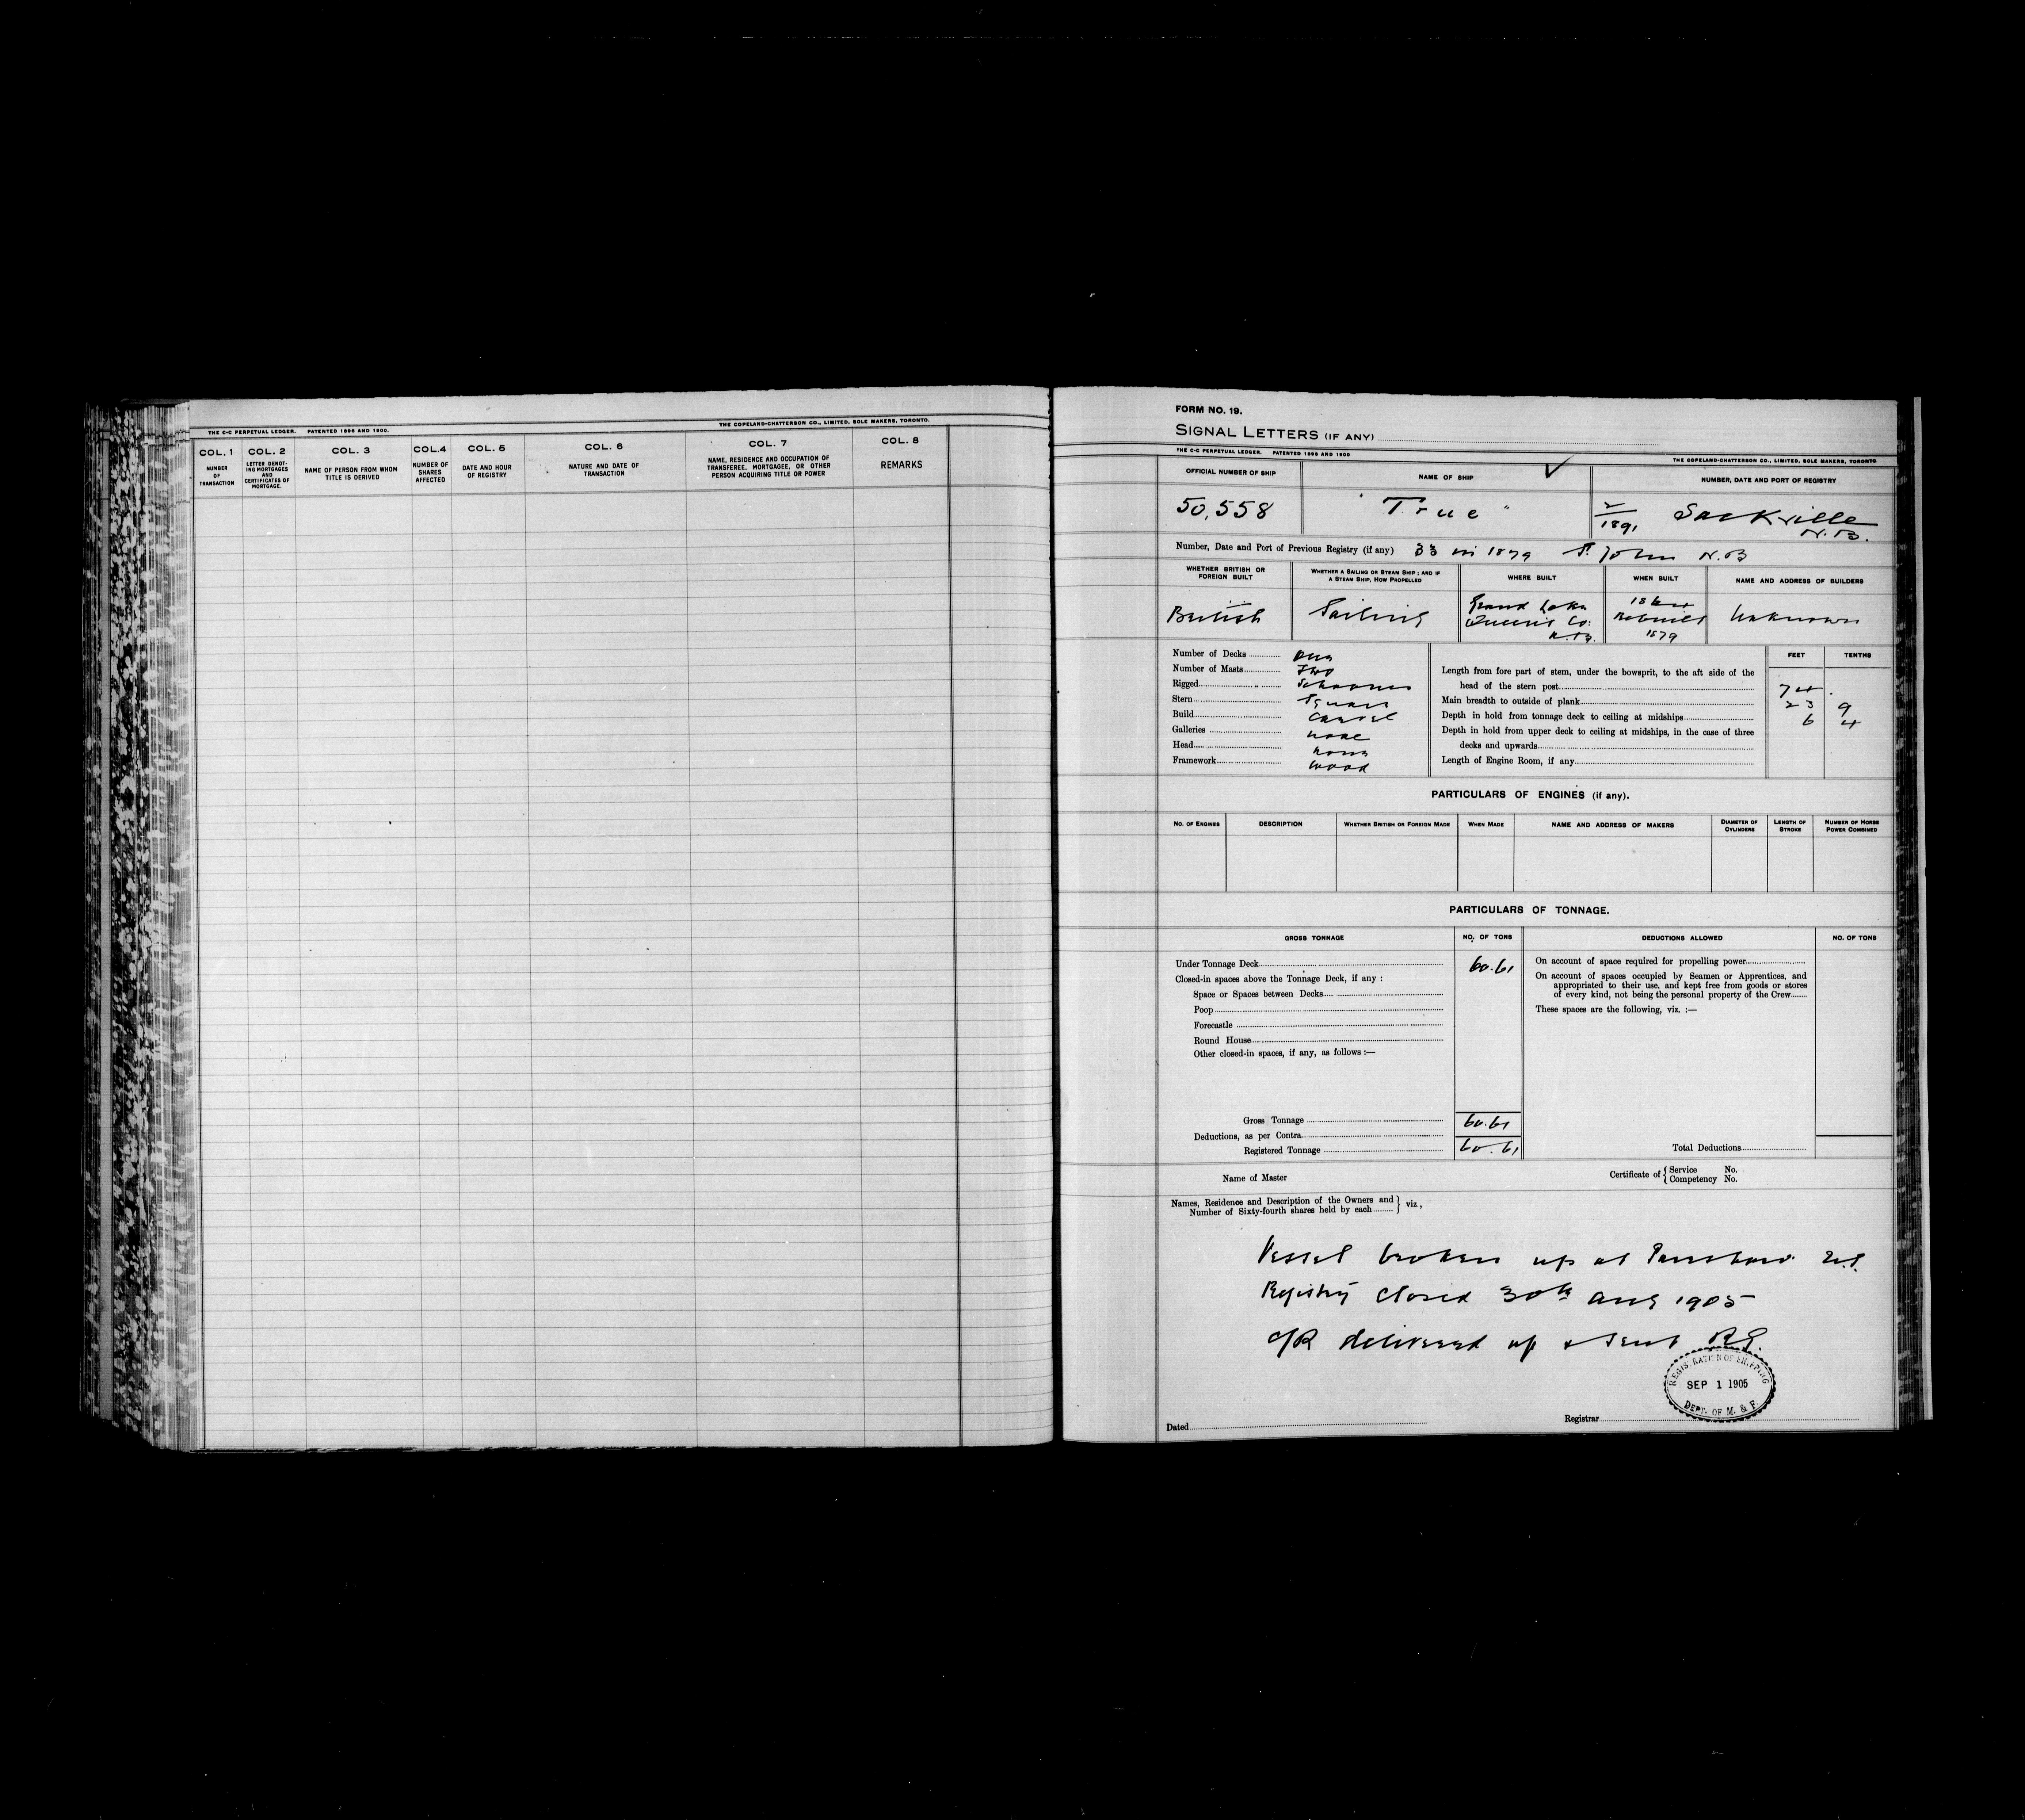 THE C-C PERPETUAL LEDGER. PATENTED 1896 AND 1900. THE COPELAND-CHATTERSON CO., LIMITED, SOLE MAKERS, TORONTO.
COL. 1 COL. 2 COL. 3 COL. 4 COL. 5 COL. 6 COL. 7 COL. 8
NUMBER OF TRANSACTION
LETTER DENOTING MORTGAGES AND CERTIFICATES OF MORTGAGE.
NAME OF PERSON FROM WHOM TITLE IS DERIVED
NUMBER OF SHARES AFFECTED
DATE AND HOUR OF REGISTRY
NATURE AND DATE OF TRANSACTION
NAME, RESIDENCE AND OCCUPATION OF TRANSFEREE, MORTGAGEE, OR OTHER PERSON ACQUIRING TITLE OR POWER
REMARKS
FORM NO. 19.
SIGNAL LETTERS (IF ANY)
THE C-C PERPETUAL LEDGER. PATENTED 1896 AND 1900 THE COPELAND-CHATTERSON CO., LIMITED, SOLE MAKERS, TORONTO
OFFICIAL NUMBER OF SHIP NAME OF SHIP NUMBER, DATE AND PORT OF REGISTRY
50,558 "True" 2/1891 Sackville N.B.
Number, Date and Port of Previous Registry (if any) 33 in 1879 St. John N.B
WHETHER BRITISH OR FOREIGN BUILT
WHETHER A SAILING OR STEAM SHIP; AND IF A STEAM SHIP, HOW PROPELLED
WHERE BUILT
WHEN BUILT
NAME AND ADDRESS OF BUILDERS
British Sailing Grand Lake Queen's Co. N.B. Rebuilt 1879 Unknown
Number of Decks One
Number of Masts Two
Rigged Schooner
Stern Square
Build Carvel
Galleries None
Head None
Framework Wood
FEET TENTHS
Length from fore part of stem, under the bowsprit, to the aft side of the
head of the stern post 74 .
Main breadth to outside of plank 23 9
Depth in hold from tonnage deck to ceiling at midships 6 4
Depth in hold from upper deck to ceiling at midships, in the case of three
decks and upwards
Length of Engine Room, if any
PARTICULARS OF ENGINES (if any).
NO. OF ENGINES DESCRIPTION WHETHER BRITISH OR FOREIGN MADE WHEN MADE NAME AND ADDRESS OF MAKERS DIAMETER OF CYLINDERS LENGTH OF STROKE NUMBER OF HORSE POWER COMBINED
PARTICULARS OF TONNAGE.
GROSS TONNAGE NO. OF TONS DEDUCTIONS ALLOWED NO. OF TONS
Under Tonnage Deck 60.61
Closed-in spaces above the Tonnage Deck, if any :
Space or Spaces between Decks
Poop
Forecastle
Round House
Other closed-in spaces, if any, as follows :—
Gross Tonnage 60.61
Deductions, as per Contra
Registered Tonnage 60.61
On account of space required for propelling power
On account of spaces occupied by Seamen or Apprentices, and
appropriated to their use, and kept free from goods or stores
of every kind, not being the personal property of the Crew
These spaces are the following, viz. :—
Total Deductions
Name of Master Certificate of { Service No.
Competency No.
Names, Residence and Description of the Owners and
Number of Sixty-fourth shares held by each } viz,
Vessel broken up at Parrsboro N.S.
Registry Closed 30th Aug 1905
C/R delivered up & sent R.G.
REGISTRATION OF SHIPPING
SEP 1 1905
DEPT. OF M. & F.
Dated Registrar